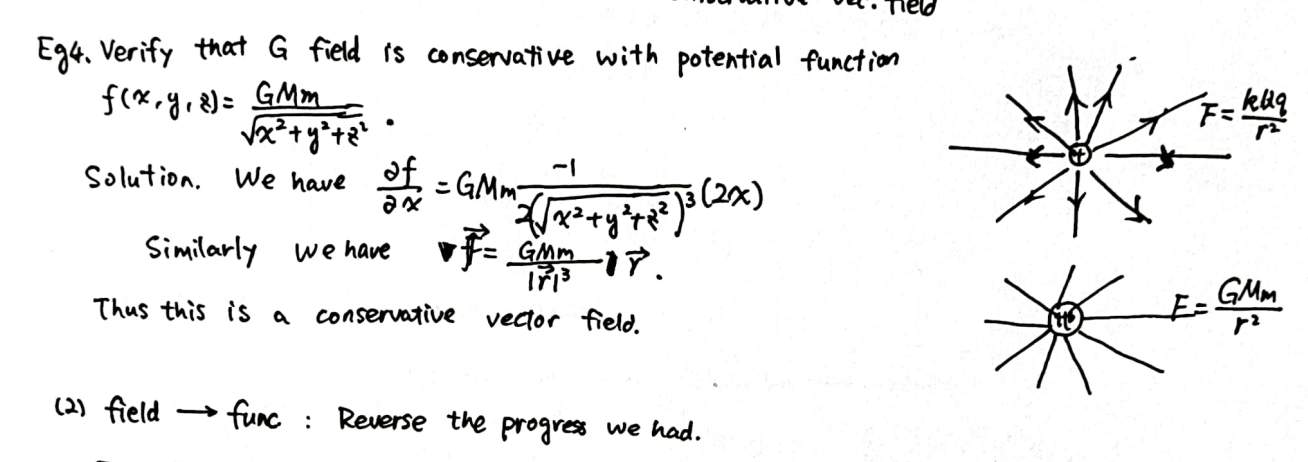 vec. field
Eg4. Verify that G field is conservative with potential function
f(x,y,z) = GMm / √(x²+y²+z²) .
Solution. We have ∂f/∂x = GMm · -1 / 2(√(x²+y²+z²))³ (2x)
Similarly we have ∇f = GMm / |r⃗|³ r⃗ .
Thus this is a conservative vector field.
(2) field → func : Reverse the progress we had.
+
F = kQq / r²
F = GMm / r²